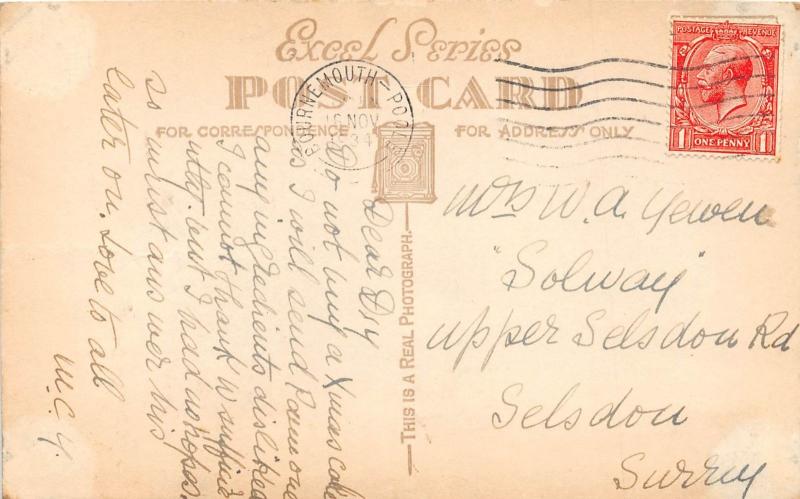 Excel Series
POST CARD
FOR CORRESPONDENCE
FOR ADDRESS ONLY
BOURNEMOUTH-POOLE
16 NOV
1934
POSTAGE REVENUE
ONE PENNY
THIS IS A REAL PHOTOGRAPH.
Dear Diy
Do not buy a Xmas cake
as I will send 1 am one
any ingredients disliked
I cannot thank W
but I had no hopes.
so must answer his
later on. Love to all
M.C.Y.
Mrs W. A. Yewen
"Solway"
Upper Selsdon Rd
Selsdon
Surrey